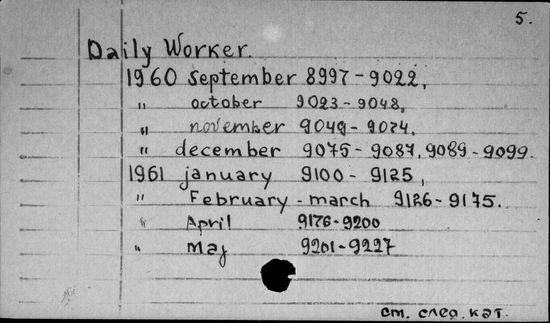 5.
Daily Worker.
1960 September 8997-9022,
" october 9023-9048,
" november 9049-9074,
" december 9075-9087, 9089-9099.
1961 january 9100-9125,
" February-march 9126-9175.
" April 9176-9200
" May 9201-9227
ст. след. кат.